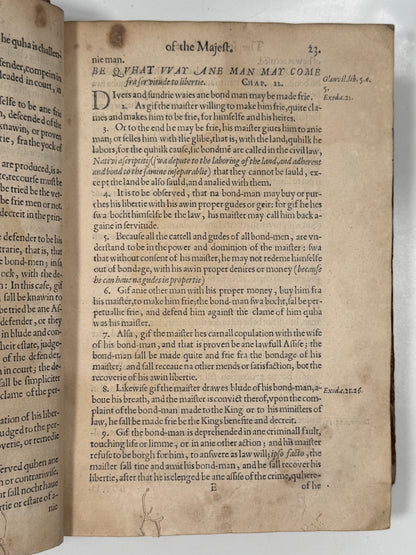 he quha is challen-
defender, compeir in
eaded in court, in
to be ane frie
descended of the
knawin, or proven
fra the yock of
are produced, is a-
recourse must be
be tried be the
be frie men or
decreit in the prin-
defender to be his
that, in the con-
with the de-
In this case, gif
sall be knawin to
be tried be ane
defender, or they
in blude and con-
of the defender,
in court; the
sall be simpliciter
clame of the per-
ation of his liber-
judged to the per-
overie, or remedie
ved quhen ane
contrariwise.
sall nocht have
tie or estate of a-
nie man.
of the Majest. 23.
BE QVHAT WAY ANE MAN MAY COME
fra servitude to libertie. CHAP. 12.
Glanvil. lib. 5. c.
5.
Exoda. 21.
DIvers and sundrie waies ane bond man may be made frie.
2. As gif the maister willing to make him frie, quite clames
and makes to be frie, for himselfe and his heires.
3. Or to the end he may be frie, his maister giues him to anie
man; or selles him with the glebe, that is, with the land, quhilk he
labors, for the quhilk cause, sic bondmē are called in the civil law,
Nativi ascripitij (swa depute to the laboring of the land, and adherent
and bond to the samine inseparablie) that they cannot be sauld, ex-
cept the land be also sauld, and analied with them.
4. It is to be observed, that na bond-man may buy or pur-
ches his libertie with his awin proper gudes or geir: for gif he hes
swa bocht himselfe be the law, his maister may call him back a-
gaine in servitude.
5. Because all the cattell and gudes of all bond-men, are vn-
derstand to be in the power and dominion of the maister: swa
that without consent of his maister, he may not redeme himself
out of bondage, with his awin proper denires or money (because
he can haue na gudes in propertie)
6. Gif anie other man with his proper money, buy him fra
his maister, to make him frie; the bond-man swa bocht, sal be per-
petuallie frie, and defend him against the clame of him quha
was his maister.
7. Also, gif the maister hes carnall copulation with the wife
of his bond-man, and that is proven be ane lawfull Assise; the
bond-man sall be made quite and frie fra the bondage of his
maister; and sall receaue na other mends or satisfaction, bot the
recoverie of his awin libertie.
8. Likewise gif the maister drawes blude of his bond-man, a-
boue his breath, and the maister is convict therof, vpon the com-
plaint of the bond-man made to the King or to his ministers of
law, he sall be made frie be the Kings benefite and decreit.
Exoda. 21. 26.
9. Gif the bond-man is deprehended in ane criminall fault,
touching life or limme, or in anie other action; and his maister
refuse to be borgh for him, to answere as law will; ipso facto, the
maister sall tine and amit his bond-man, and he sall recover his
libertie, after that he is clenged be ane assise of the crime, quhere-
E
of he